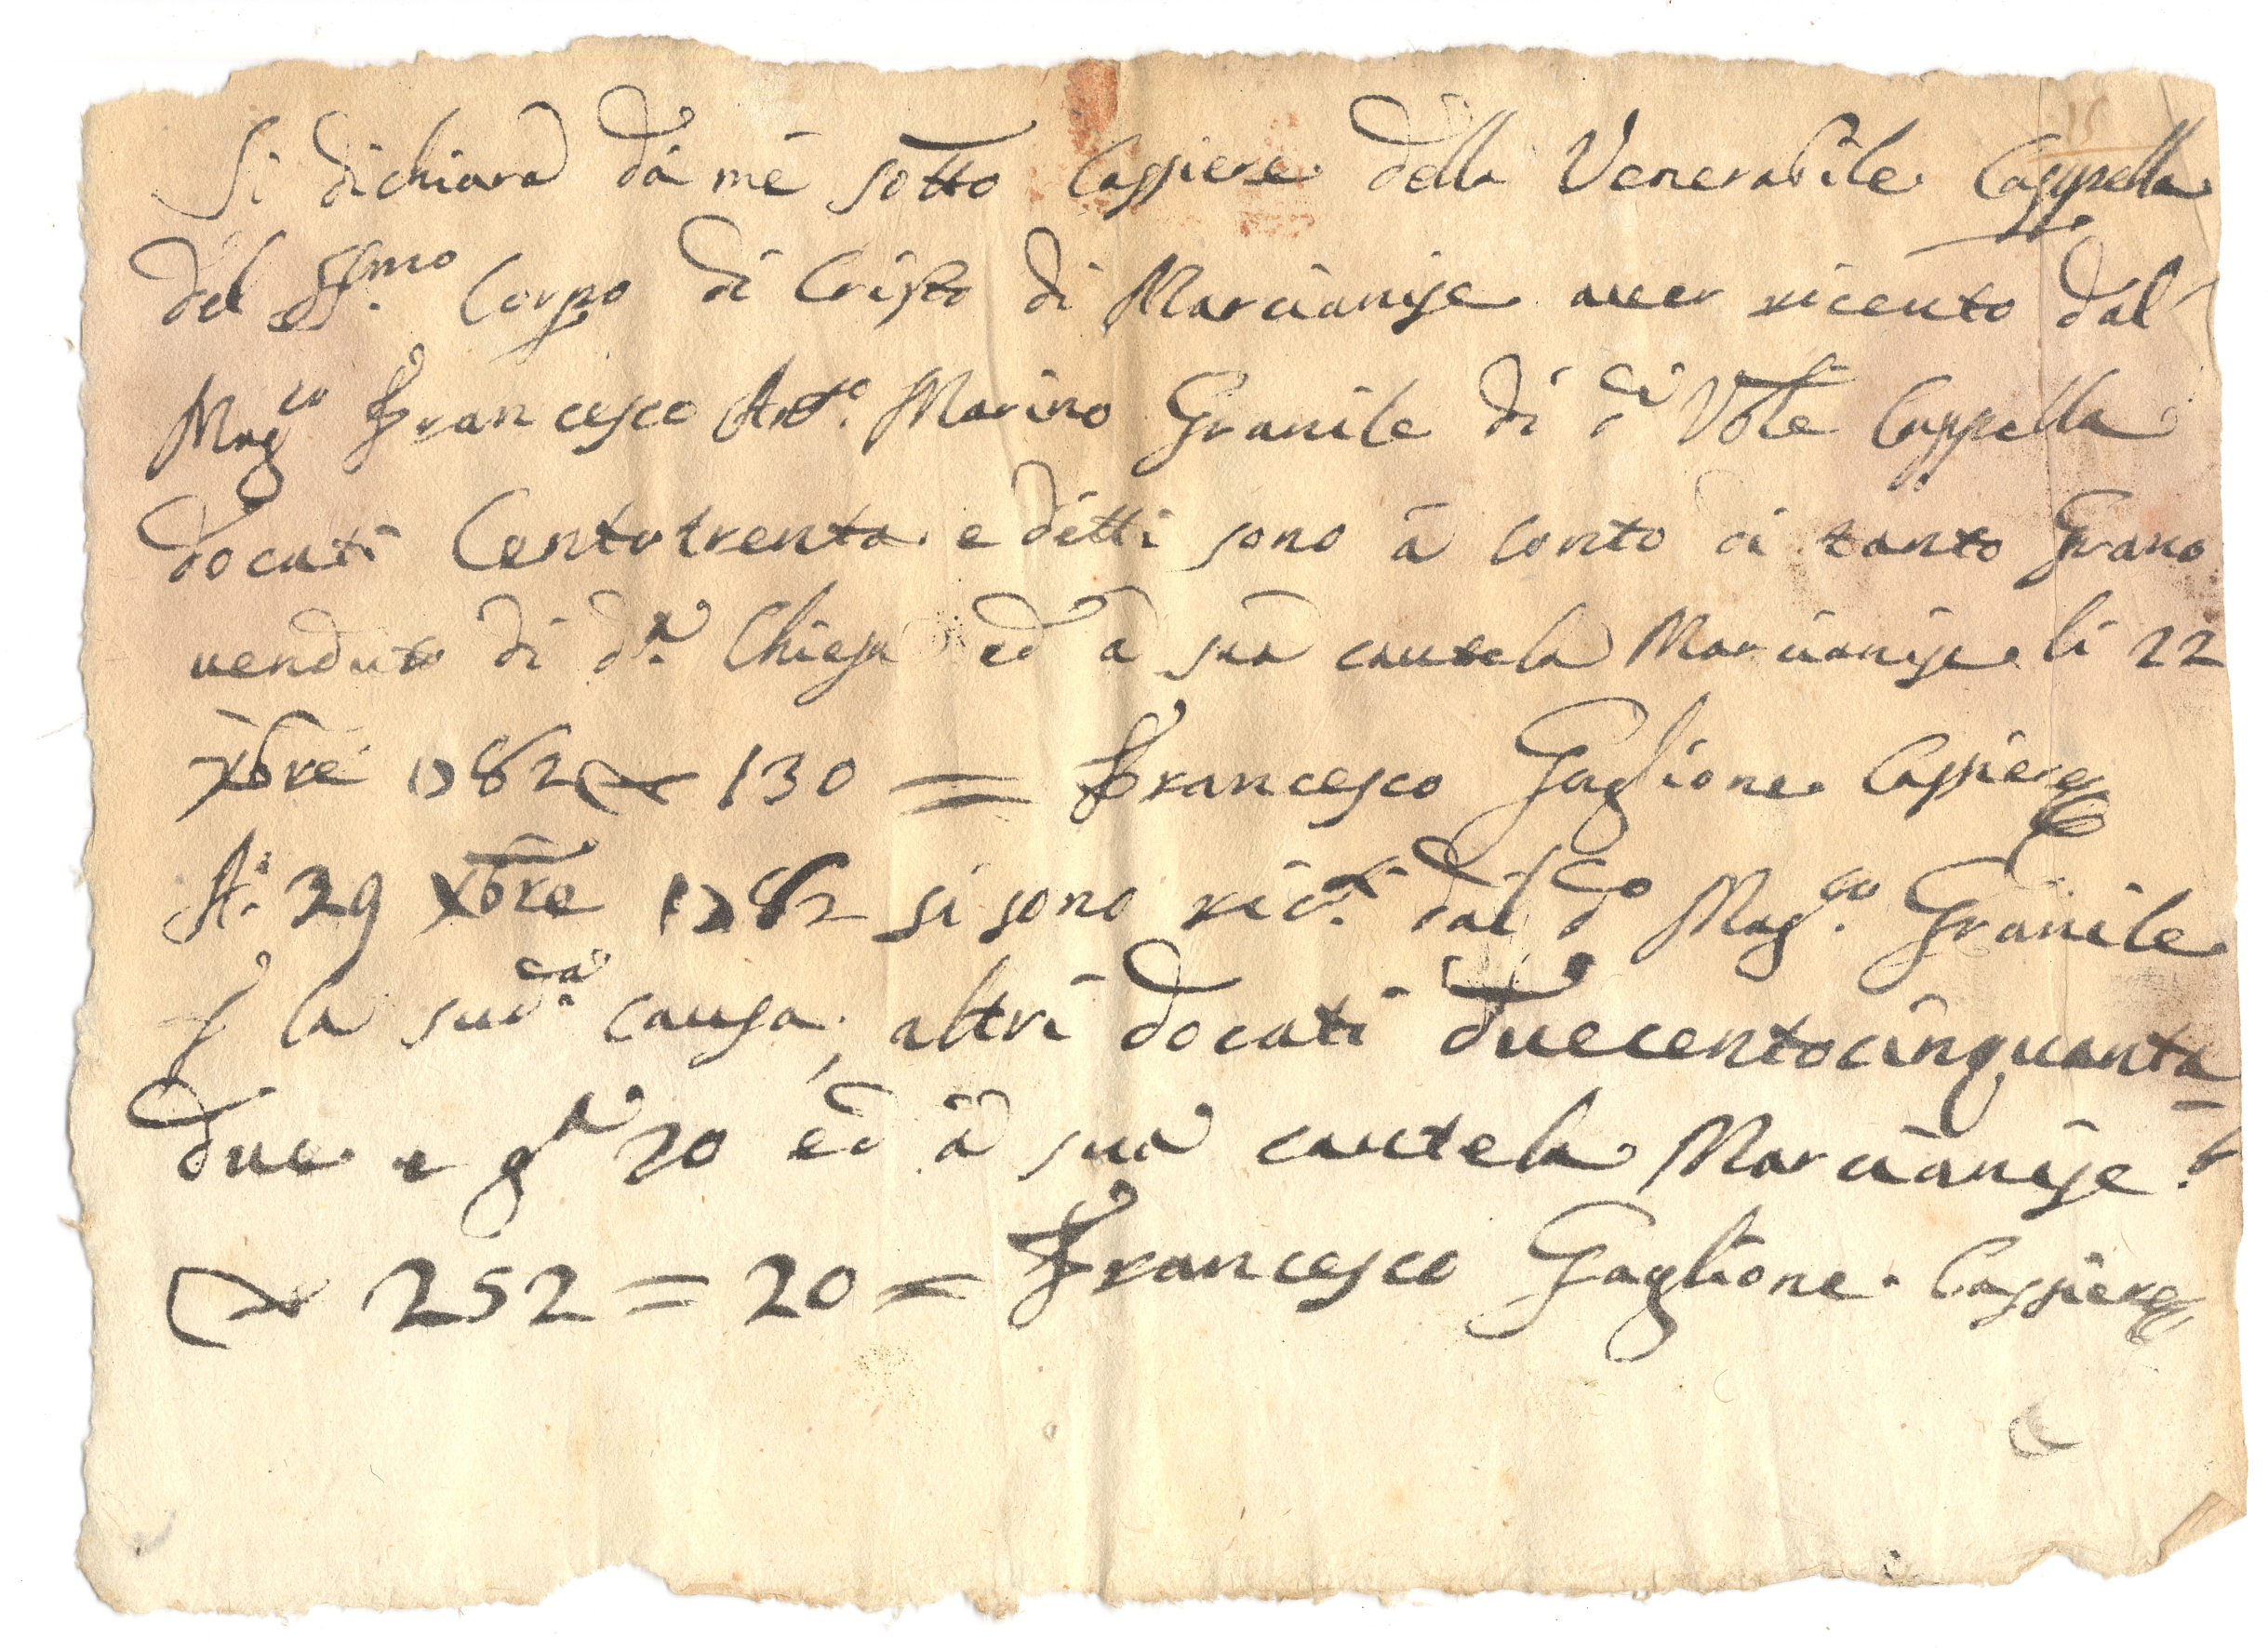 Si dichiara da me sotto Cassiere della Venerabile Cappella
del SSmo. Corpo di Cristo di Marcianise auer riceuto dal
Magco Francesco Anto. Marino Granile di dci Vble Cappella
docati Centotrenta e detti sono à conto di tanto Grano
venduto di da. Chiesa ed à sua cautela Marcianise li 22
xbre 1782 130 = Francesco Gaglione Cassiere
A: 29 xbre 1782 si sono ricti. dal do Magco. Granile
p la sudа. causa, altri docati duecentocinquanta
due e gra 20 ed à sua cautela Marcianise
252 = 20 = Francesco Gaglione Cassiere